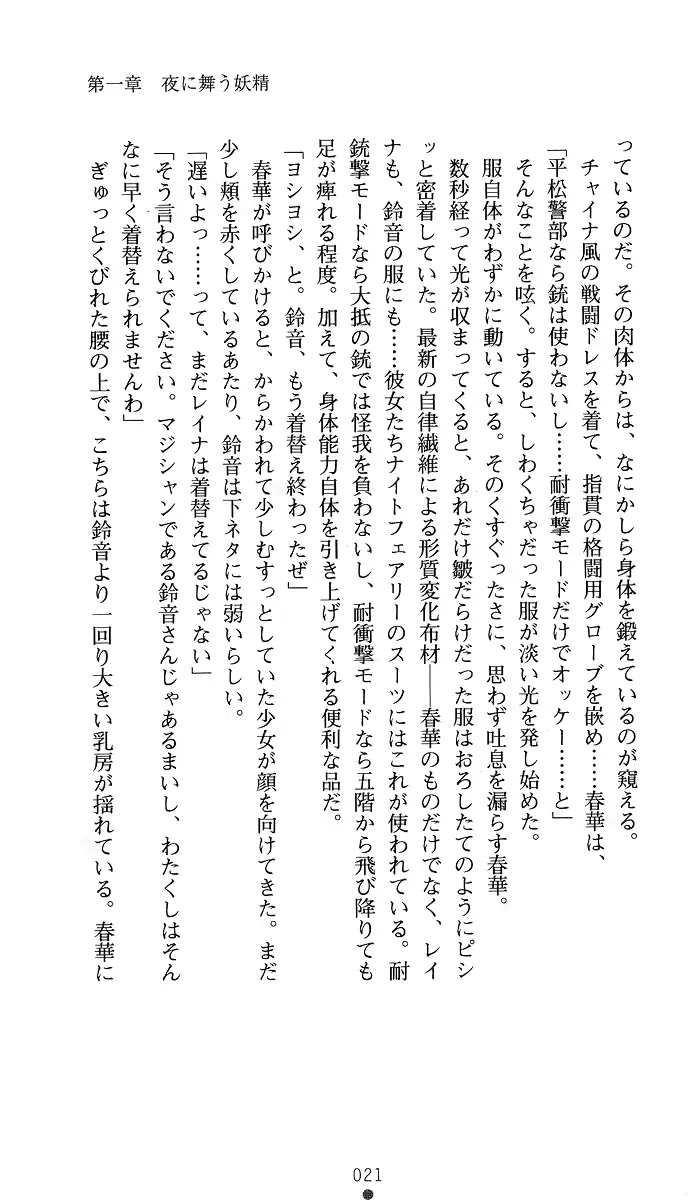 第一章　夜に舞う妖精
っているのだ。その肉体からは、なにかしら身体を鍛えているのが窺える。
　チャイナ風の戦闘ドレスを着て、指貫の格闘用グローブを嵌め……春華は、
「平松警部なら銃は使わないし……耐衝撃モードだけでオッケー……と」
　そんなことを呟く。すると、しわくちゃだった服が淡い光を発し始めた。
　服自体がわずかに動いている。そのくすぐったさに、思わず吐息を漏らす春華。
　数秒経って光が収まってくると、あれだけ皺だらけだった服はおろしたてのようにピシ
ッと密着していた。最新の自律繊維による形質変化布材――春華のものだけでなく、レイ
ナも、鈴音の服にも……彼女たちナイトフェアリーのスーツにはこれが使われている。耐
銃撃モードなら大抵の銃では怪我を負わないし、耐衝撃モードなら五階から飛び降りても
足が痺れる程度。加えて、身体能力自体を引き上げてくれる便利な品だ。
「ヨシヨシ、と。鈴音、もう着替え終わったぜ」
　春華が呼びかけると、からかわれて少しむすっとしていた少女が顔を向けてきた。まだ
少し頬を赤くしているあたり、鈴音は下ネタには弱いらしい。
「遅いよっ……って、まだレイナは着替えてるじゃない」
「そう言わないでください。マジシャンである鈴音さんじゃあるまいし、わたくしはそん
なに早く着替えられませんわ」
　ぎゅっとくびれた腰の上で、こちらは鈴音より一回り大きい乳房が揺れている。春華に
021